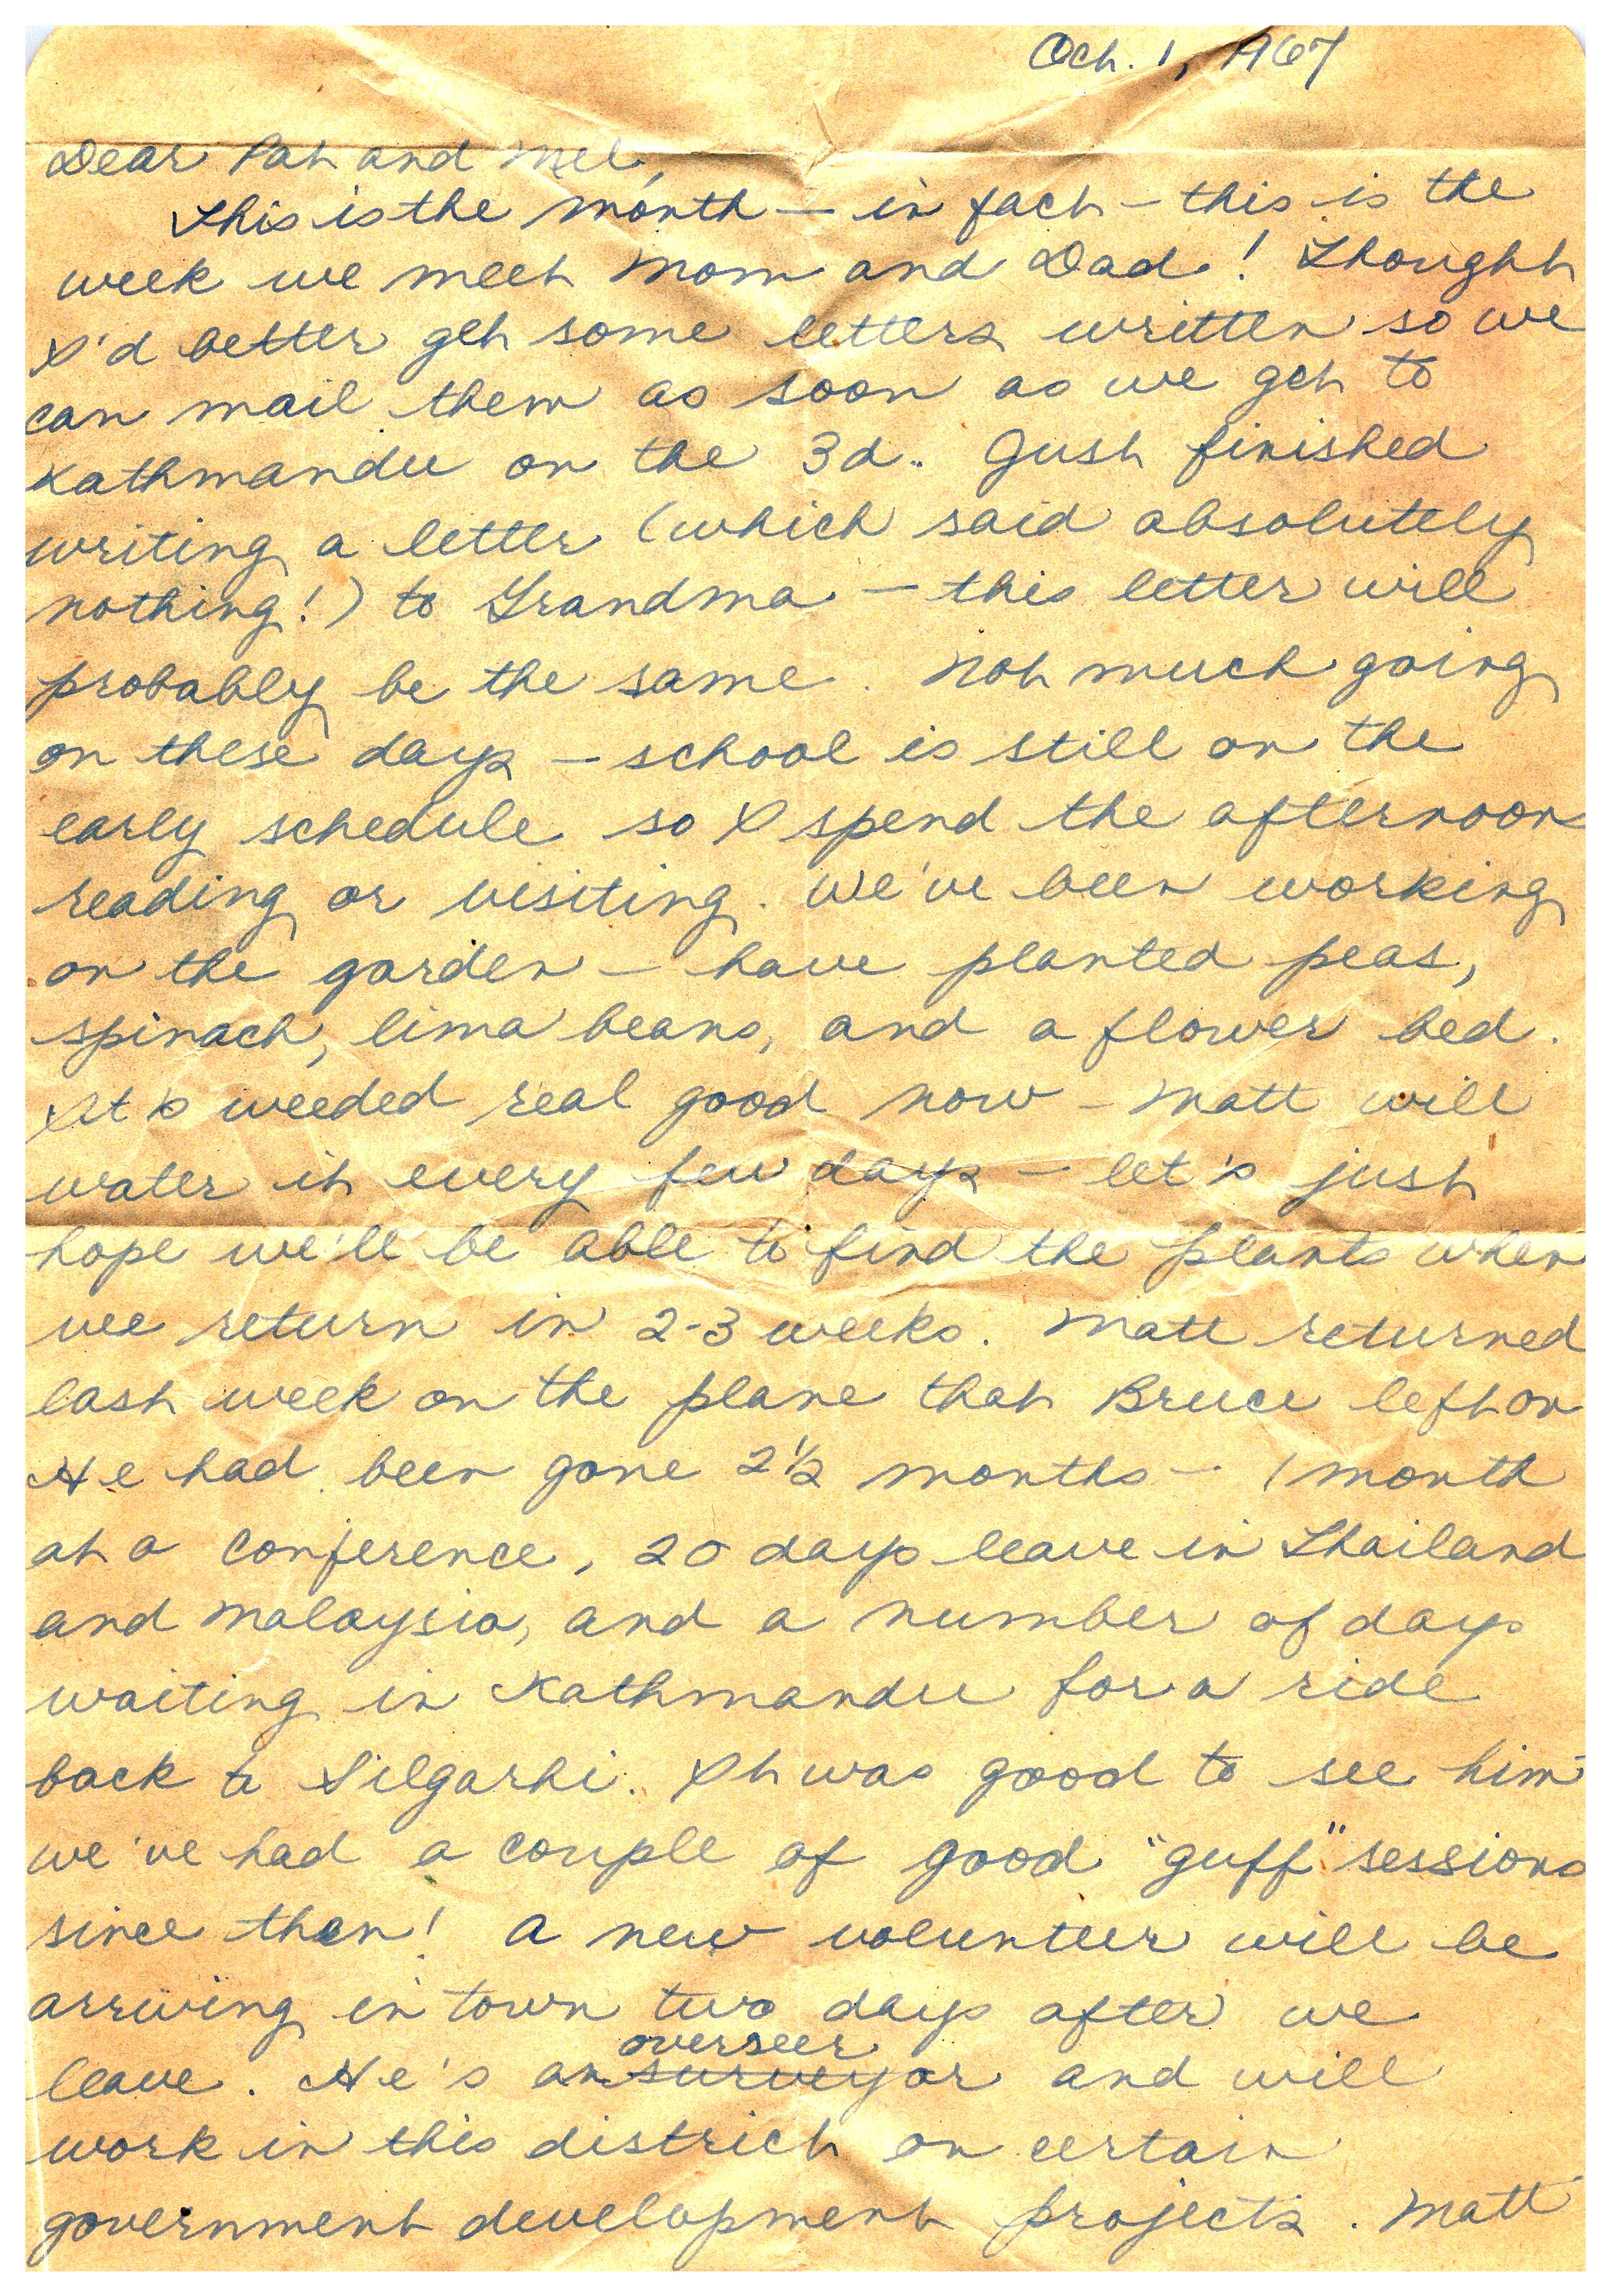 Oct. 1, 1967
Dear Pat and Mel,
This is the month — in fact — this is the
week we meet Mom and Dad! Thought
I'd better get some letters written so we
can mail them as soon as we get to
Kathmandu on the 3d. Just finished
writing a letter (which said absolutely
nothing!) to Grandma — this letter will
probably be the same. Not much going
on these days — school is still on the
early schedule so I spend the afternoon
reading or visiting. We've been working
on the garden — have planted peas,
spinach, lima beans, and a flower bed.
It's weeded real good now — Matt will
water it every few days — let's just
hope we'll be able to find the plants when
we return in 2-3 weeks. Matt returned
last week on the plane that Bruce left on
He had been gone 2½ months — 1 month
at a conference, 20 days leave in Thailand
and Malaysia, and a number of days
waiting in Kathmandu for a ride
back to Silgarhi. It was good to see him –
we've had a couple of good "guff" sessions
since then! A new volunteer will be
arriving in town two days after we
overseer
leave. He's an surveyor and will
work in this district on certain
government development projects. Matt